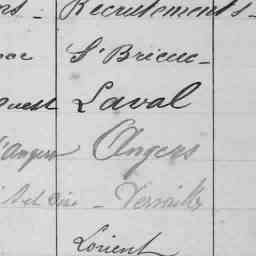 Recrutements -
St Brieuc -
Ouest Laval
d'Angers Angers
et Oise - Versailles
Lorient